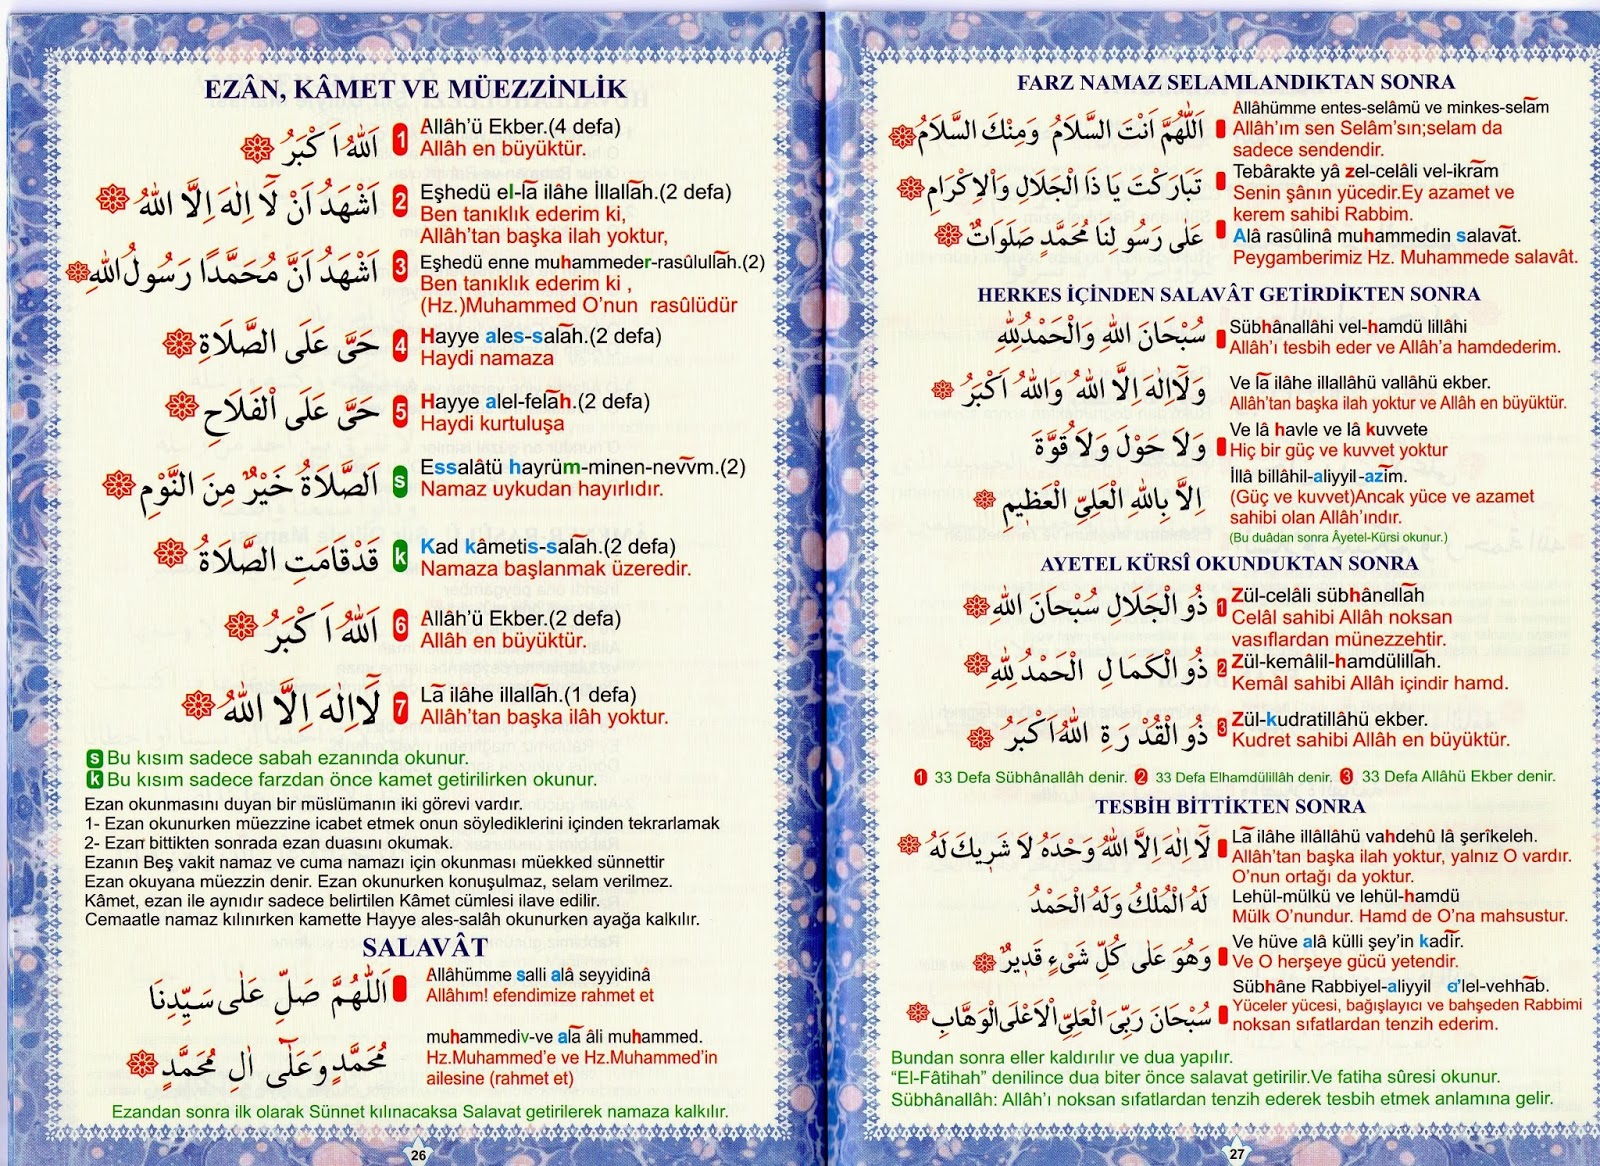 EZÂN, KÂMET VE MÜEZZİNLİK
اَللهُ اَكْبَرُ 1 Allâh’ü Ekber.(4 defa)
Allâh en büyüktür.
اَشْهَدُ اَنْ لَٓا اِلٰهَ اِلَّا اللهُ 2 Eşhedü el-lâ ilâhe İllallâh.(2 defa)
Ben tanıklık ederim ki,
Allâh’tan başka ilah yoktur,
اَشْهَدُ اَنَّ مُحَمَّدًا رَسُولُ اللهِ 3 Eşhedü enne muhammeder-rasûlullâh.(2)
Ben tanıklık ederim ki ,
(Hz.)Muhammed O’nun rasûlüdür
حَىَّ عَلَى الصَّلَاةِ 4 Hayye ales-salâh.(2 defa)
Haydi namaza
حَىَّ عَلَى الْفَلَاحِ 5 Hayye alel-felâh.(2 defa)
Haydi kurtuluşa
اَلصَّلَاةُ خَيْرٌ مِنَ النَّوْمِ s Essalâtü hayrüm-minen-nevvm.(2)
Namaz uykudan hayırlıdır.
قَدْقَامَتِ الصَّلَاةُ k Kad kâmetis-salâh.(2 defa)
Namaza başlanmak üzeredir.
اَللهُ اَكْبَرُ 6 Allâh’ü Ekber.(2 defa)
Allâh en büyüktür.
لَٓااِلٰهَ اِلَّا اللهُ 7 Lâ ilâhe illallâh.(1 defa)
Allâh’tan başka ilâh yoktur.
s Bu kısım sadece sabah ezanında okunur.
k Bu kısım sadece farzdan önce kamet getirilirken okunur.
Ezan okunmasını duyan bir müslümanın iki görevi vardır.
1- Ezan okunurken müezzine icabet etmek onun söylediklerini içinden tekrarlamak
2- Ezan bittikten sonrada ezan duasını okumak.
Ezanın Beş vakit namaz ve cuma namazı için okunması müekked sünnettir
Ezan okuyana müezzin denir. Ezan okunurken konuşulmaz, selam verilmez.
Kâmet, ezan ile aynıdır sadece belirtilen Kâmet cümlesi ilave edilir.
Cemaatle namaz kılınırken kamette Hayye ales-salâh okunurken ayağa kalkılır.
SALAVÂT
اَللّٰهُمَّ صَلِّ عَلٰى سَيِّدِنَا Allâhümme salli alâ seyyidinâ
Allâhım! efendimize rahmet et
مُحَمَّدٍ وَعَلٰٓى اٰلِ مُحَمَّدٍ muhammediv-ve alâ âli muhammed.
Hz.Muhammed’e ve Hz.Muhammed’in
ailesine (rahmet et)
Ezandan sonra ilk olarak Sünnet kılınacaksa Salavat getirilerek namaza kalkılır.
26
FARZ NAMAZ SELAMLANDIKTAN SONRA
اَللّٰهُمَّ اَنْتَ السَّلَامُ وَمِنْكَ السَّلَامُ Allâhümme entes-selâmü ve minkes-selâm
Allâh’ım sen Selâm’sın;selam da
sadece sendendir.
تَبَارَكْتَ يَا ذَا الْجَلَالِ وَالْاِكْرَامِ Tebârakte yâ zel-celâli vel-ikrâm
Senin şânın yücedir.Ey azamet ve
kerem sahibi Rabbim.
عَلٰى رَسُولِنَا مُحَمَّدٍ صَلَوَاتٌ Alâ rasûlinâ muhammedin salavât.
Peygamberimiz Hz. Muhammede salavât.
HERKES İÇİNDEN SALAVÂT GETİRDİKTEN SONRA
سُبْحَانَ اللهِ وَالْحَمْدُ لِلّٰهِ Sübhânallâhi vel-hamdü lillâhi
Allâh’ı tesbih eder ve Allâh’a hamdederim.
وَلَٓااِلٰهَ اِلَّا اللهُ وَاللهُ اَكْبَرُ Ve lâ ilâhe illallâhü vallâhü ekber.
Allâh’tan başka ilah yoktur ve Allâh en büyüktür.
وَلَا حَوْلَ وَلَا قُوَّةَ Ve lâ havle ve lâ kuvvete
Hiç bir güç ve kuvvet yoktur
اِلَّا بِاللهِ الْعَلِىِّ الْعَظِيمِ İllâ billâhil-aliyyil-azîm.
(Güç ve kuvvet)Ancak yüce ve azamet
sahibi olan Allâh’ındır.
(Bu duâdan sonra Âyetel-Kürsi okunur.)
AYETEL KÜRSÎ OKUNDUKTAN SONRA
ذُو الْجَلَالِ سُبْحَانَ اللهِ 1 Zül-celâli sübhânallâh
Celâl sahibi Allâh noksan
vasıflardan münezzehtir.
ذُو الْكَمَالِ الْحَمْدُ لِلّٰهِ 2 Zül-kemâlil-hamdülillâh.
Kemâl sahibi Allâh içindir hamd.
ذُو الْقُدْرَةِ اللهُ اَكْبَرُ 3 Zül-kudratillâhü ekber.
Kudret sahibi Allâh en büyüktür.
1 33 Defa Sübhânallâh denir. 2 33 Defa Elhamdülillâh denir. 3 33 Defa Allâhü Ekber denir.
TESBİH BİTTİKTEN SONRA
لَٓا اِلٰهَ اِلَّا اللهُ وَحْدَهُ لَا شَرِيكَ لَهُ Lâ ilâhe illâllâhü vahdehû lâ şerîkeleh.
Allâh’tan başka ilah yoktur, yalnız O vardır.
O’nun ortağı da yoktur.
لَهُ الْمُلْكُ وَلَهُ الْحَمْدُ Lehül-mülkü ve lehül-hamdü
Mülk O’nundur. Hamd de O’na mahsustur.
وَهُوَ عَلٰى كُلِّ شَىْءٍ قَدِيرٌ Ve hüve alâ külli şey’in kadîr.
Ve O herşeye gücü yetendir.
سُبْحَانَ رَبِّىَ الْعَلِىِّ الْاَعْلَى الْوَهَّابِ Sübhâne Rabbiyel-aliyyil e’lel-vehhâb.
Yüceler yücesi, bağışlayıcı ve bahşeden Rabbimi
noksan sıfatlardan tenzih ederim.
Bundan sonra eller kaldırılır ve dua yapılır.
“El-Fâtihah” denilince dua biter önce salavat getirilir.Ve fatiha sûresi okunur.
Sübhânallâh: Allâh’ı noksan sıfatlardan tenzih ederek tesbih etmek anlamına gelir.
27